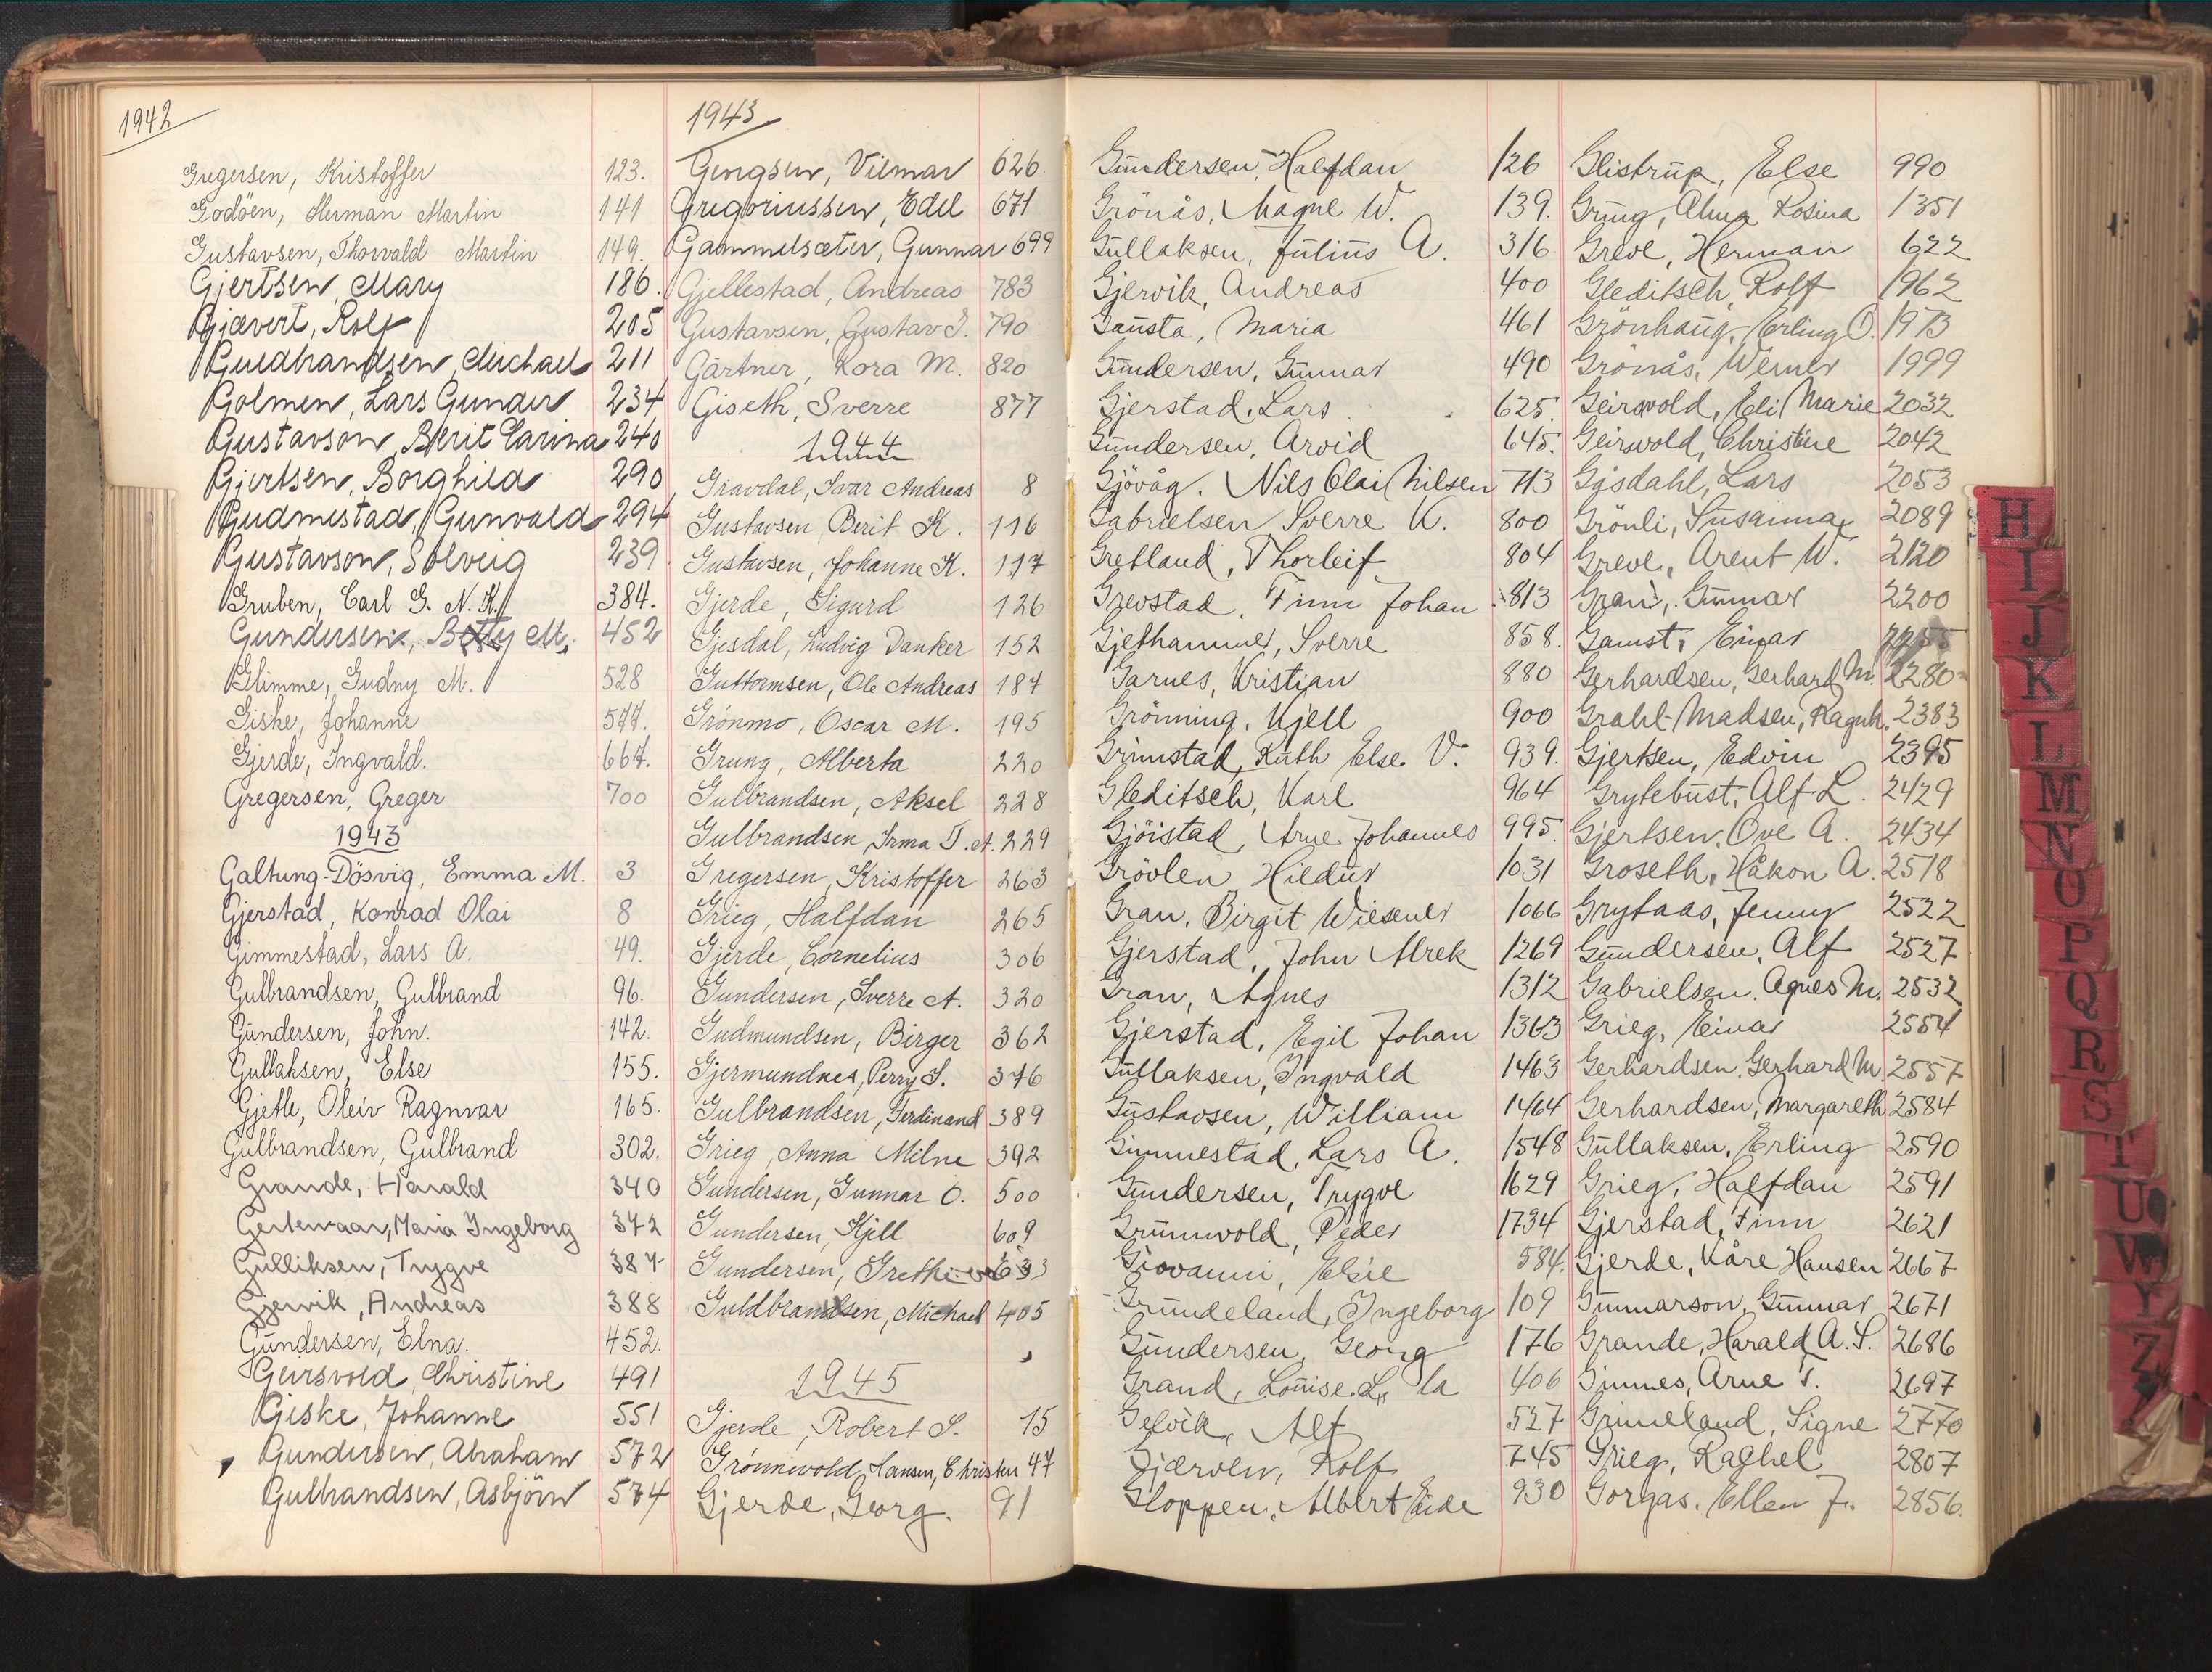 1942
Gregersen, Kristoffer 123.
Godöen, Herman Martin 141
Gustavsen, Thorvald Martin 149.
Gjertsen, Mary 186.
Gjævert, Rolf 205
Guldbrandsen, Michael 211
Golmen, Lars Gunder 234
Gustavson, Berit Carina 240
Gjertsen, Borghild 290
Gudmestad, Gunvald 294
Gustavson, Solveig 239
Gruben, Carl G. N. K. 384.
Gundersen, Betty M. 452
Glimme, Gudny M. 528
Giske, Johanne 577.
Gjerde, Ingvald. 667.
Gregersen, Greger 700
1943
Galtung-Dösvig, Emma M. 3
Gjerstad, Konrad Olai 8
Gimmestad, Lars A. 49.
Gulbrandsen, Gulbrand 96.
Gundersen, John. 142.
Gullaksen, Else 155.
Gjetle, Oleiv Ragnvar 165.
Gulbrandsen, Gulbrand 302.
Grande, Harald 340
Maria Ingeborg 372
Gulliksen, Trygve 387
Gjervik, Andreas 388
Gundersen, Elna. 452.
Geirsvold, Christine 491
Giske, Johanne 551
Gundersen, Abraham 572
Gulbrandsen, Asbjörn 574
1943
Gengsen, Vilmar 626
Gregoriussen, Edel 671
Gammelsæter, Gunnar 699
Gjellestad, Andreas 783
Gustavsen, Gustav J. 790
Gärtner, Kora M. 820
Giseth, Sverre 877
1944
Gravdal, Ivar Andreas 8
Gustavsen, Berit K. 116
Gustavsen, Johanne K. 117
Gjerde, Sigurd 126
Gjesdal, Ludvig Danker 152
Guttormsen, Ole Andreas 187
Grönmo, Oscar M. 195
Grung, Alberta 220
Gulbrandsen, Aksel 228
Gulbrandsen, Irma T. A. 229
Gregersen, Kristoffer 263
Grieg, Halfdan 265
Gjerde, Cornelius 306
Gundersen, Sverre A. 320
Gudmundsen, Birger 362
Gjermundnes, Perry S. 376
Gulbrandsen, Ferdinand 389
Grieg, Anna Milne 392
Gundersen, Gunnar O. 500
Gundersen, Kjell 609
Gundersen, Grethe 633
Guldbrandsen, Michael 405
1945
Gjerde, Robert S. 15
Grönnevold Hansen, Christen 47
Gjerde, Georg. 91
Gundersen, Halfdan 126
Grönås, Magne W. 139.
Gullaksen, Julius A. 316
Gjervik, Andreas 400
Gausta, Maria 461
Gundersen, Gunnar 490
Gjerstad, Lars 625.
Gundersen, Arvid 645.
Gjövåg. Nils Olai Nilsen 713
Gabrielsen Sverre K. 800
Gretland, Thorleif 804
Grevstad, Finn Johan 813
Gjethammer, Sverre 858.
Garnes, Kristian 880
Grönning, Kjell 900
Grimstad, Ruth Else V. 939.
Gleditsch, Karl 964
Gjöistad, Arne Johannes 995.
Grövlen Hildur 1031
Gran, Birgit Wiesener 1066
Gjerstad, John Alrek 1269
Gran, Agnes 1312
Gjerstad, Egil Johan 1363
Gullaksen, Ingvald 1463
Gustavsen, William 1464
Gimmestad, Lars A. 1548
Gundersen, Trygve 1629
Grunnvold, Peder 1734
Giovanni, Elsie 584.
Grundeland, Ingeborg 109
Gundersen, Georg 176
Grand, Louise L. la 406
Gelvik, Alf 527
Gjærven, Rolf 745
Gloppen, Albert Eide 930
Glistrup, Else 990
Grung, Alma Rosina 1351
Greve, Herman 622
Gleditsch, Rolf 1962
Grönhaug, Erling O. 1973
Grönås, Werner 1999
Geirsvold, Eli Marie 2032
Geirsvold, Christine 2042
Gåsdahl, Lars 2053
Grönli, Susanna 2089
Greve, Arent W. 2120
Gran, Gunnar 2200
Gamst, Einar 2255
Gerhardsen, Gerhard M. 2280
Grahl-Madsen, Ragnh. 2383
Gjertsen, Edvin 2395
Grytebust, Alf L. 2429
Gjertsen, Ove A. 2434
Groseth, Håkon A. 2518
Grytaas, Jenny 2522
Gundersen, Alf 2527
Gabrielsen, Agnes M. 2532
Grieg, Einar 2554
Gerhardsen, Gerhard M. 2557
Gerhardsen, Margareth 2584
Gullaksen, Erling 2590
Grieg, Halfdan 2591
Gjerstad, Finn 2621
Gjerde, Kåre Hansen 2667
Gunnarson, Gunnar 2671
Grande, Harald A. S. 2686
Ginnes, Arne T. 2697
Grimeland, Signe 2770
Grieg, Rachel 2807
Gorgas, Ellen J. 2856.
H
I
J
K
L
M
N
O
P
Q
R
S
T
U
W
Y
Z